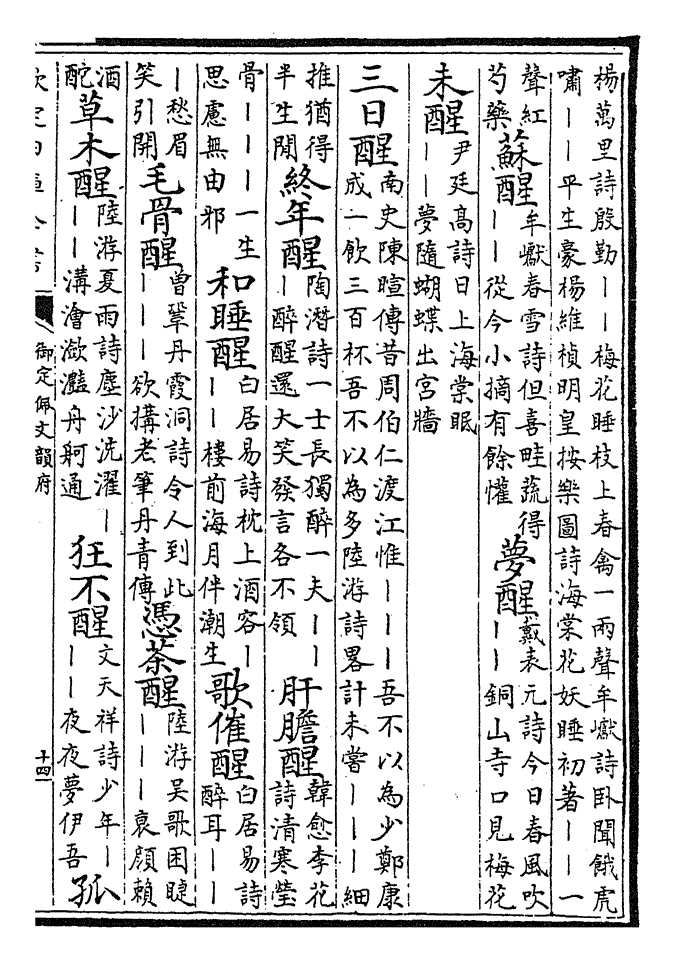 楊萬里詩殷勤——梅花睡枝上春禽一兩聲牟巘詩卧聞餓虎
嘯——平生豪楊維楨明皇按樂圖詩海棠花妖睡初著——一
聲紅
芍藥
蘇醒
牟巘春雪詩但喜畦蔬得
——從今小摘有餘懽
夢醒
戴表元詩今日春風吹
——銅山寺口見梅花
未醒
尹廷高詩日上海棠眠
——夢隨蝴蝶出宮牆
三日醒
南史陳暄傳昔周伯仁渡江惟———吾不以為少鄭康
成一飲三百杯吾不以為多陸游詩畧計未嘗———細
推猶得
半生閒
終年醒
陶潛詩一士長獨醉一夫——
—醉醒還大笑發言各不領
肝膽醒
韓愈李花
詩清寒瑩
骨———一生
思慮無由邪
和睡醒
白居易詩枕上酒容—
——樓前海月伴潮生
歌催醒
白居易詩
醉耳——
—愁眉
笑引開
毛骨醒
曾鞏丹霞洞詩令人到此
———欲搆老筆丹青傳
憑茶醒
陸游吳歌困睫
———衰顔賴
酒
酡
草木醒
陸游夏雨詩塵沙洗濯—
——溝澮瀲灧舟舸通
狂不醒
文天祥詩少年—
——夜夜夢伊吾
孤
御定佩文韻府
十四